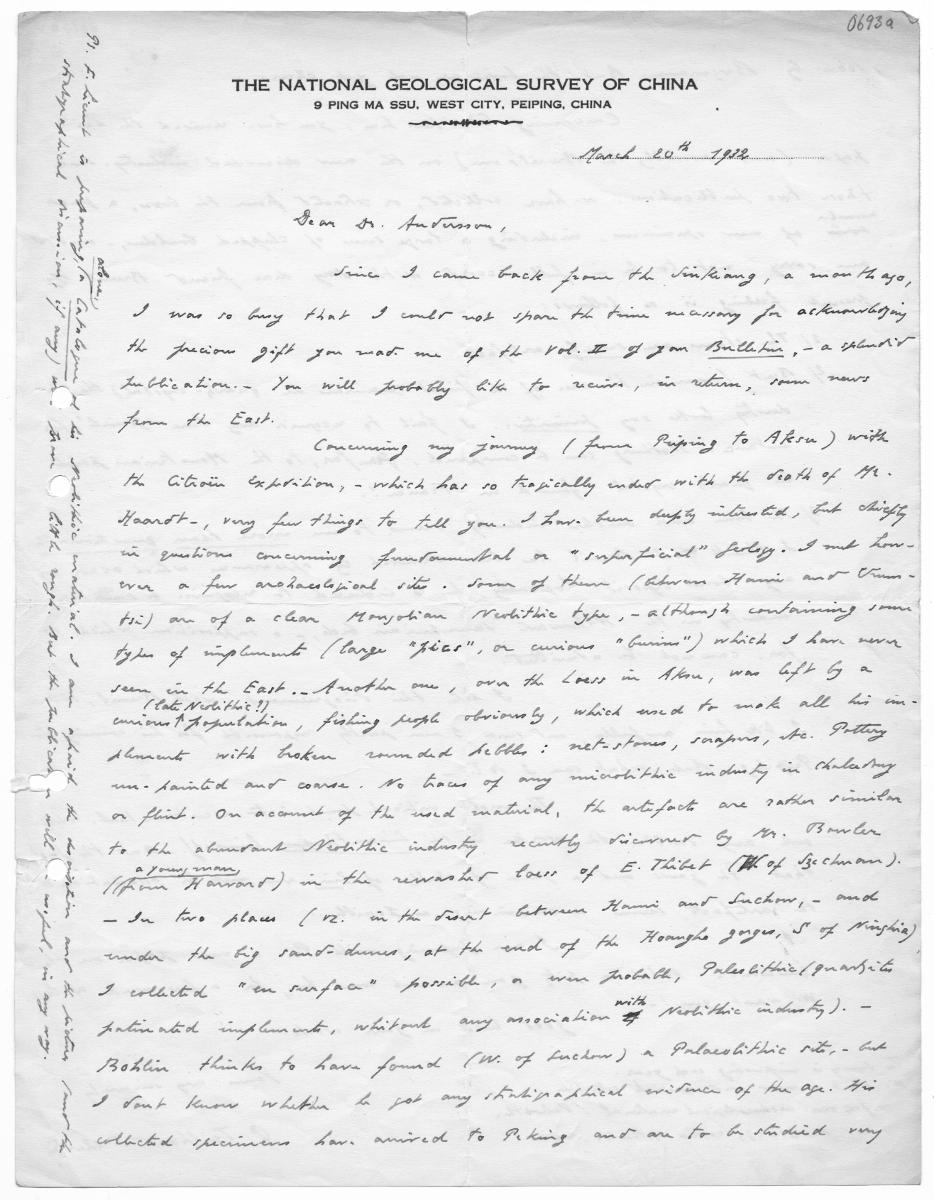 0693a
THE NATIONAL GEOLOGICAL SURVEY OF CHINA
9 PING MA SSU, WEST CITY, PEIPING, CHINA
March 20th 1932
Dear Dr. Andersson,
Since I came back from the Sinkiang, a month ago,
I was so busy that I could not spare the time necessary for acknowledging
the precious gift you made me of the Vol. II of your Bulletin, – a splendid
publication. – You will probably like to receive, in return, some news
from the East.
Concerning my journey (from Peiping to Aksu) with
the Citroën Expedition, – which has so tragically ended with the death of Mr.
Haardt –, very few things to tell you. I have been deeply interested, but chiefly
in questions concerning fundamental or "superficial" Geology. I met how-
ever a few archaeological sites. Some of them (between Hami and Urum-
tsi) are of a clear Mongolian Neolithic type, – although containing some
types of implements (large "pics", or curious "burins") which I have never
seen in the East. – Another one, over the Loess in Aksu, was left by a
(late Neolithic?!)
curious population, fishing people obviously, which used to make all his im-
plements with broken rounded pebbles: net-stones, scrapers, etc. Pottery
un-painted and coarse. No traces of any microlithic industry in chalcedony
or flint. On account of the used material, the artefacts are rather similar
to the abundant Neolithic industry recently discovered by Mr. Bowler
a young man,
(from Harvard) in the rewashed loess of E. Thibet (of Szechwan).
– In two places (vz. in the desert between Hami and Suchow, – and
under the big sand-dunes, at the end of the Hoangho gorges, S of Ninghia)
I collected "en surface" possible, or even probable, Paleolithic (quartzite
patinated implements, whitout any association with Neolithic industry). –
Bohlin thinks to have found (W. of Suchow) a Palaeolithic site, – but
I don't know whether he got any stratigraphical evidence of the age. His
collected specimens have arrived to Peking and are to be studied very
E. Licent is preparing, alone, a Catalogue of his Neolithic material. I am afraid the description and the pictures (and the
stratigraphical discussion, if any) little rough. But the publication will useful, in any way.